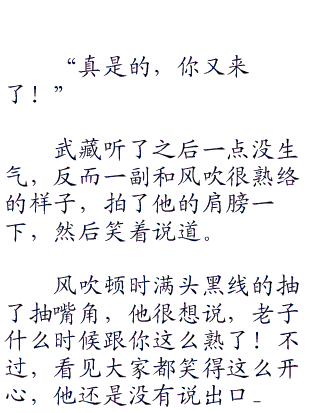 “真是的，你又来
了！”
武藏听了之后一点没生
气，反而一副和风吹很熟络
的样子，拍了他的肩膀一
下，然后笑着说道。
风吹顿时满头黑线的抽
了抽嘴角，他很想说，老子
什么时候跟你这么熟了！不
过，看见大家都笑得这么开
心，他还是没有说出口_